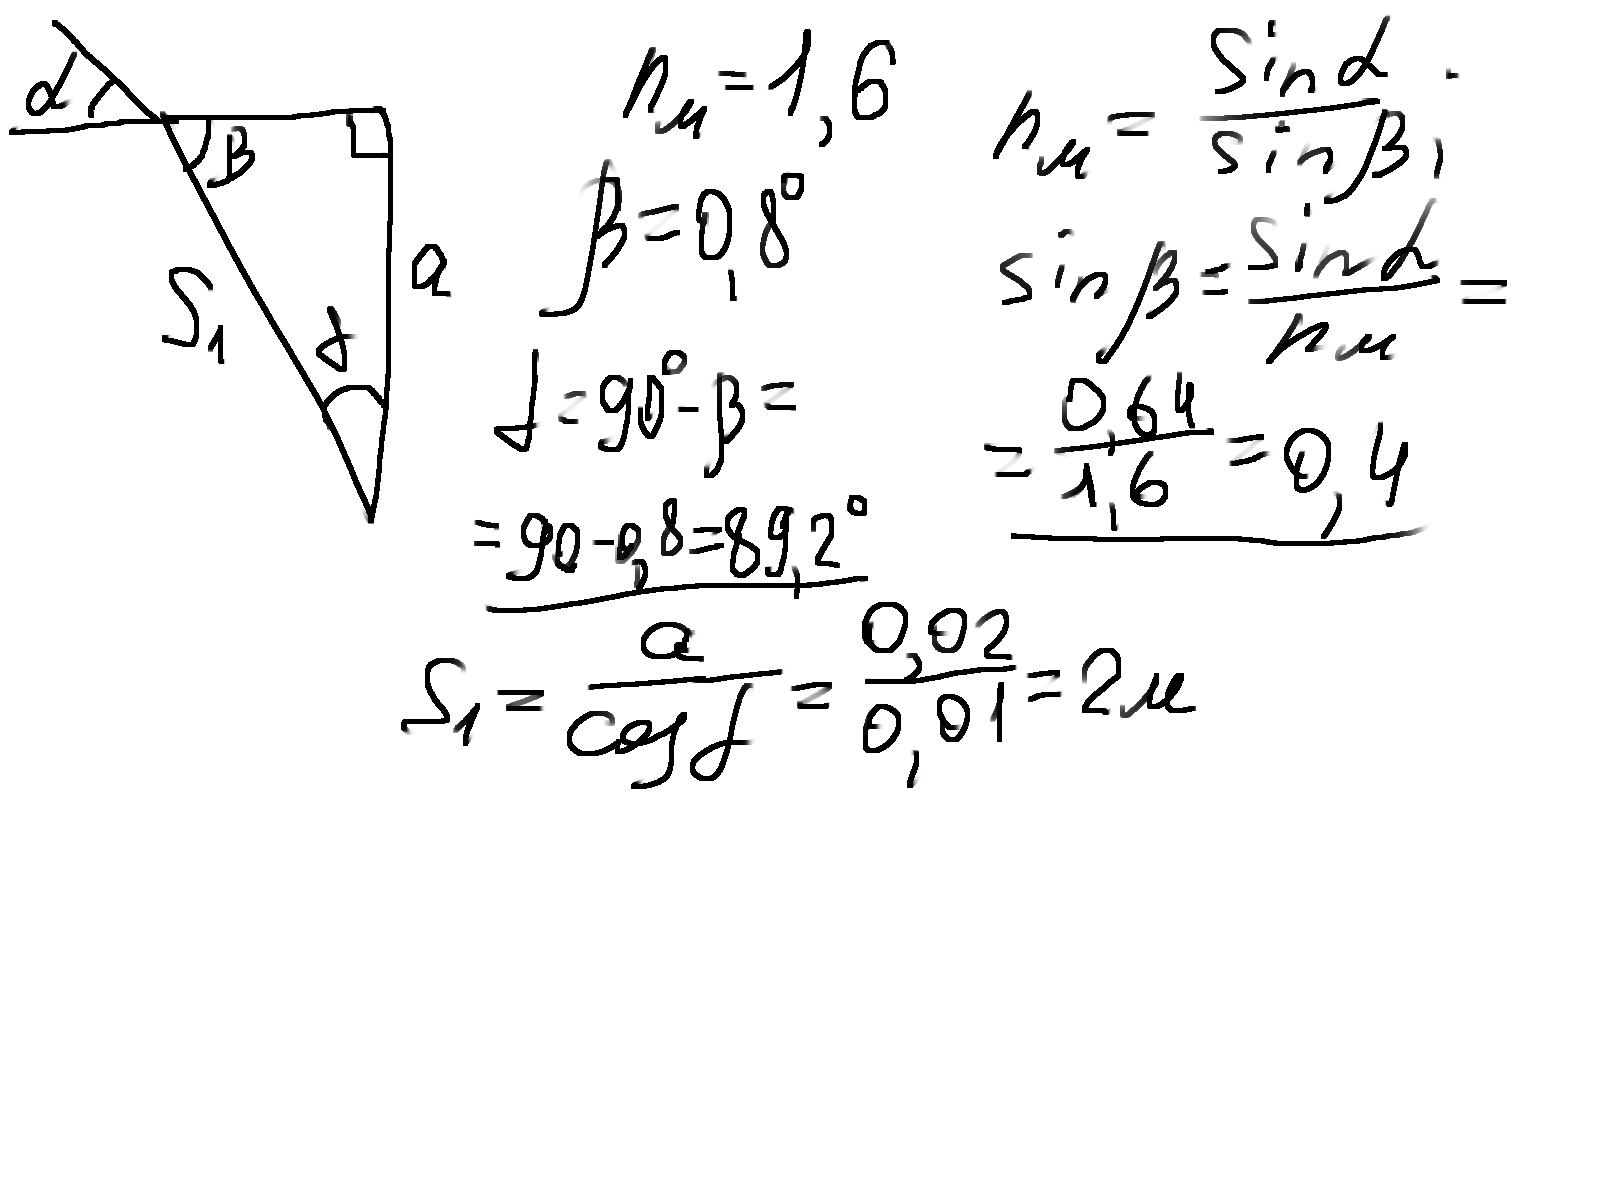 α
β
S₁
γ
a
nₘ = 1,6
β = 0,8°
γ = 90° - β =
= 90 - 0,8 = 89,2°
nₘ = sin α / sin β,
sin β = sin α / nₘ =
= 0,64 / 1,6 = 0,4
S₁ = a / cos γ = 0,02 / 0,01 = 2м